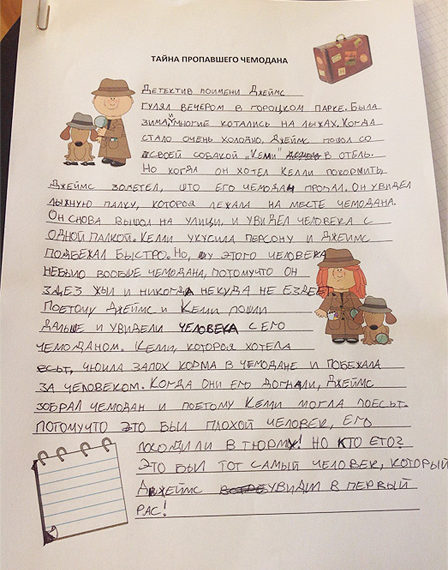 ТАЙНА ПРОПАВШЕГО ЧЕМОДАНА
ДЕТЕКТИВ ПОИМЕНИ ДЖЕЙМС
ГУЛЯЛ ВЕЧЕРОМ В ГОРОЦКОМ ПАРКЕ. БЫЛА
ЗИМА, И МНОГИЕ КОТАЛИСЬ НА ЛЫЖАХ. КОГДА
СТАЛО ОЧЕНЬ ХОЛОДНО, ДЖЕЙМС ПОШОЛ СО
СВОЕЙ СОБАКОЙ „КЕЛИ" В ОТЕЛЬ.
НО КОГДА ОН ХОТЕЛ КЕЛЛИ ПОКОРМИТЬ,
ДЖЕЙМС ЗОМЕТЕЛ, ШТО ЕГО ЧЕМОДАН ПРОПАЛ. ОН УВИДЕЛ
ЛЫЖНУЮ ПАЛКУ, КОТОРОЯ ЛЕЖАЛА НА МЕСТЕ ЧЕМОДАНА.
ОН СНОВА ВЫШОЛ НА УЛИЦИ И УВИДЕЛ ЧЕЛОВЕКА С
ОДНОЙ ПАЛКОЙ. КЕЛЛИ УКУСИЛА ПЕРСОНУ И ДЖЕЙМС
ПОДБЕЖАЛ БЫСТРО. НО, У ЭТОГО ЧЕЛОВЕКА
НЕБЫЛО ВООБШЕ ЧЕМОДАНА, ПОТОМУЧТО ОН
ЗДЕЗ ЖЫЛ И НИКОГДА НЕКУДА НЕ ЕЗДЕЕТ.
ПОЕТОМУ ДЖЕЙМС И КЕЛИ ПОШЛИ
ДАЛЬШЕ И УВИДЕЛИ ЧЕЛОВЕКА С ЕГО
ЧЕМОДАНОМ. КЕЛИ, КОТОРОЯ ХОТЕЛА
ЕСЬТ, ЧЮИЛА ЗАПОХ КОРМА В ЧЕМОДАНЕ И ПОБЕЖАЛА
ЗА ЧЕЛОВЕКОМ. КОГДА ОНИ ЕГО ДОГНАЛИ, ДЖЕЙМС
ЗОБРАЛ ЧЕМОДАН И ПОЕТОМУ КЕЛИ МОГЛА ПОЕСЬТ.
ПОТОМУЧТО ЭТО БЫЛ ПЛОХОЙ ЧЕЛОВЕК, ЕГО
ПОСОДИЛИ В ТЮРМУ! НО КТО ЕТО?
ЭТО БЫЛ ТОТ САМЫЙ ЧЕЛОВЕК, КОТОРЫЙ
ДЖЕЙМС УВИДИЛ В ПЕРВЫЙ
РАС!